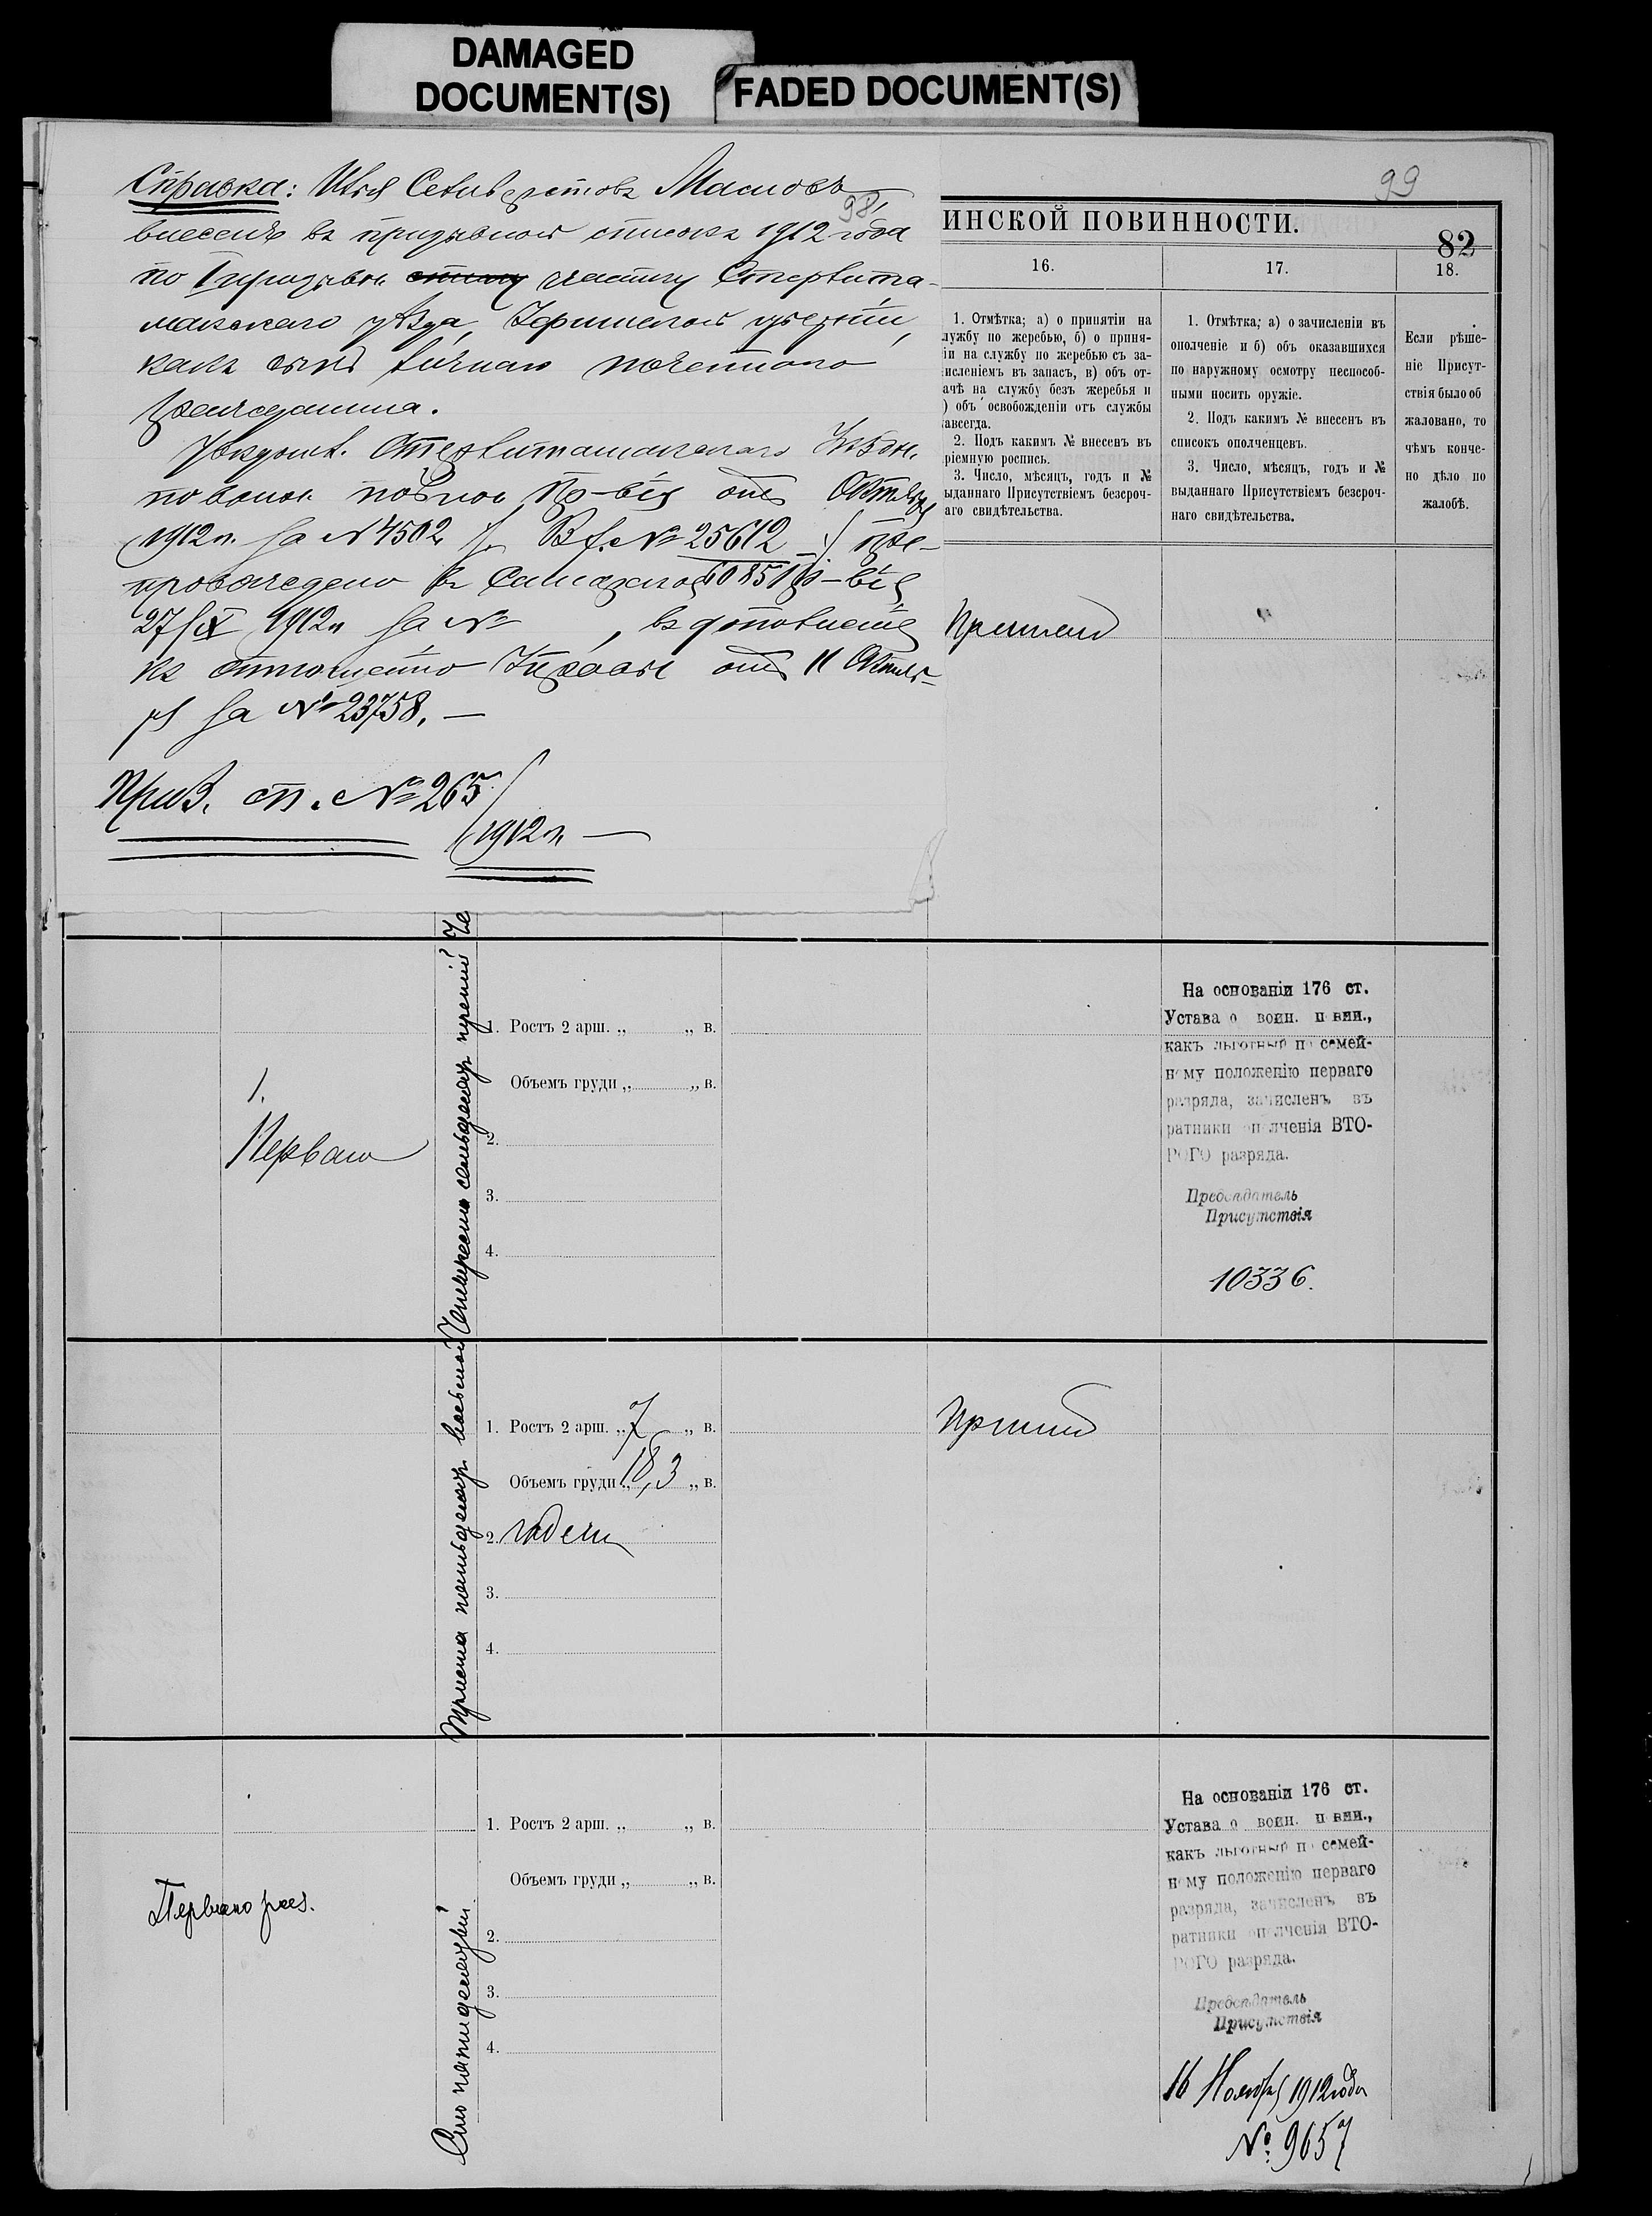 DAMAGED
DOCUMENT(S)
FADED DOCUMENT(S)
99
Справка: Илья Селиверстовъ Масловъ
98
внесенъ въ призывной списокъ 1912 года
по I призывн. участку Стерлита-
макскаго уѣзда, Уфимской губерніи,
какъ сынъ личнаго почетнаго
гражданина.
Стерлитамакскаго
по воинск. повин. Пр-вія отъ Октября
1912 г. за № 4502 Вх. № 25612 пре-
провождено въ Самарское 10851 Пр-віе
27/IX 1912 г. за № , въ дополненіе
къ отношенію Управы отъ 11 Октяб-
ря за № 23758. —
Приз. сп. № 265
1912 г. —
ИНСКОЙ ПОВИННОСТИ.
82
16.
17.
18.
1. Отмѣтка; а) о принятіи на
лужбу по жеребью, б) о приня-
іи на службу по жеребью съ за-
исленіемъ въ запасъ, в) объ от-
ачѣ на службу безъ жеребья и
) объ освобожденіи отъ службы
авсегда.
2. Подъ какимъ № внесенъ въ
ріемную роспись.
3. Число, мѣсяцъ, годъ и №
ыданнаго Присутствіемъ безсроч-
аго свидѣтельства.
1. Отмѣтка; а) о зачисленіи въ
ополченіе и б) объ оказавшихся
по наружному осмотру неспособ-
ными носить оружіе.
2. Подъ какимъ № внесенъ въ
списокъ ополченцевъ.
3. Число, мѣсяцъ, годъ и №
выданнаго Присутствіемъ безсроч-
наго свидѣтельства.
Если рѣше-
ніе Присут-
ствія было об
жаловано, то
чѣмъ конче-
но дѣло по
жалобѣ.
Принятъ
1.
Перваго
Четыреста семьдесятъ третій
1. Ростъ 2 арш. „ „ в.
Объемъ груди „ „ в.
2.
3.
4.
На основаніи 176 ст.
Устава о воин. повин.,
какъ льготный по семей-
ному положенію перваго
разряда, зачисленъ въ
ратники ополченія ВТО-
РОГО разряда.
Предсѣдатель
Присутствія
10336.
Триста пятьдесятъ восьмой
1. Ростъ 2 арш. „ 7 „ в.
Объемъ груди „ 18,3 „ в.
2. Годенъ
3.
4.
Принятъ
Перваго раз.
Сто пятидесятый
1. Ростъ 2 арш. „ „ в.
Объемъ груди „ „ в.
2.
3.
4.
На основаніи 176 ст.
Устава о воин. повин.,
какъ льготный по семей-
ному положенію перваго
разряда, зачисленъ въ
ратники ополченія ВТО-
РОГО разряда.
Предсѣдатель
Присутствія
16 Ноября 1912 года
№ 9657